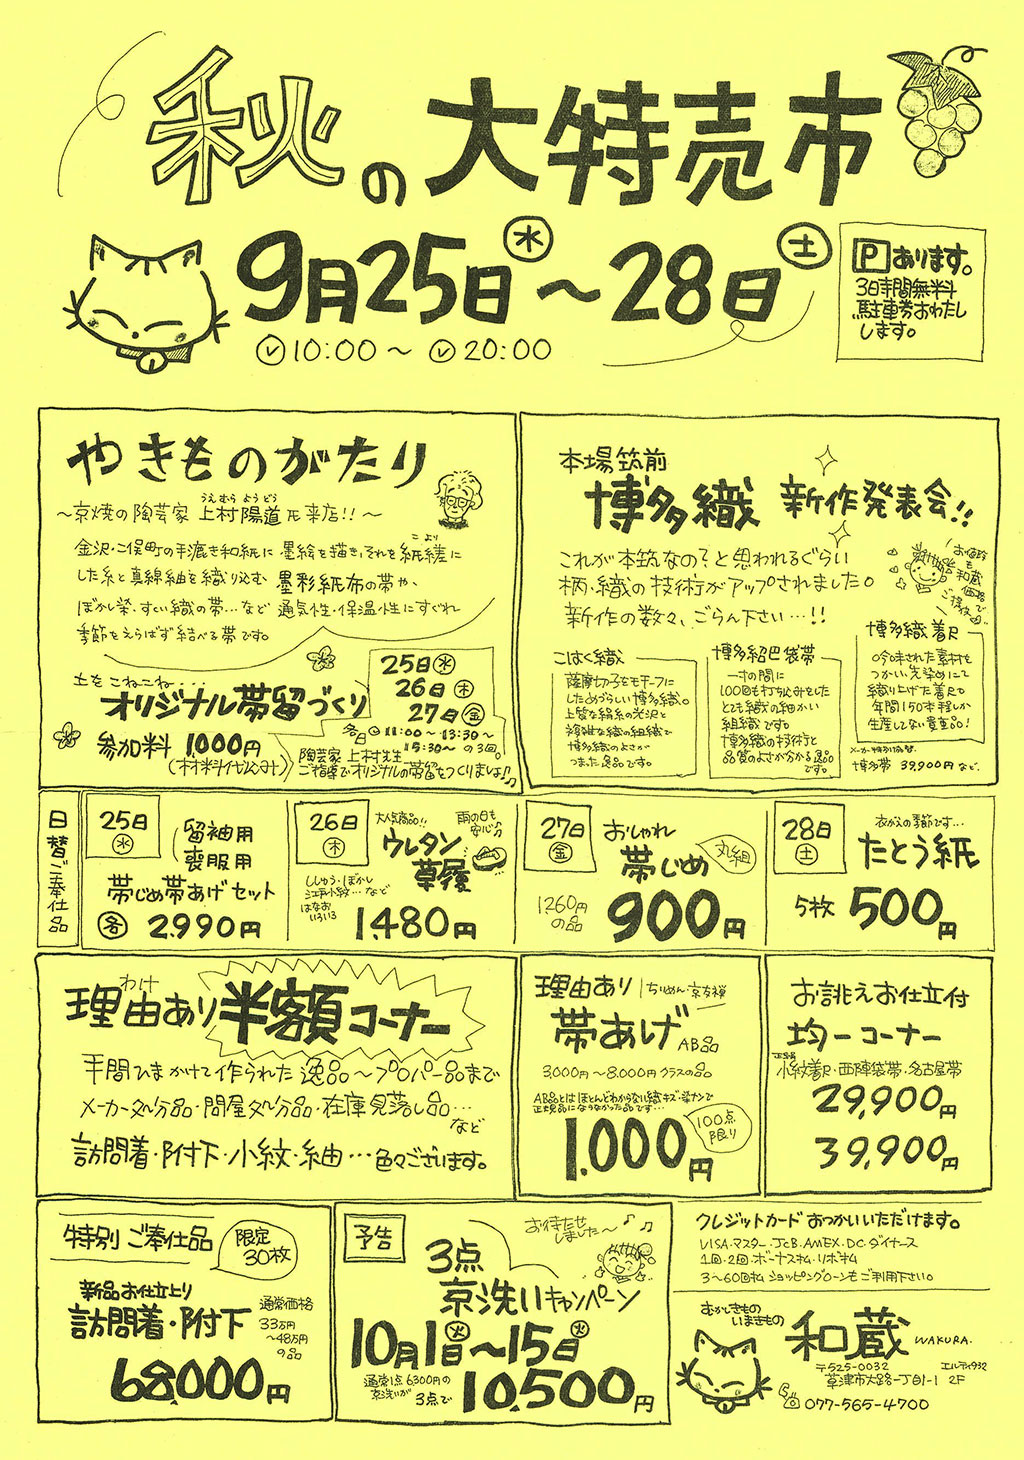 秋の大特売市
9月25日㊌～28日㊏
10:00～20:00
Pあります。
3時間無料
駐車券おわたし
します。
やきものがたり
うえむら ようどう
～京焼の陶芸家 上村陽道氏来店!!～
こより
金沢・二俣町の手漉き和紙に墨絵を描き、それを紙縒に
した糸と真綿紬を織り込む 墨彩紙布の帯や、
ぼかし染・すくい織の帯…など 通気性・保温性にすぐれ
季節をえらばず結べる帯です。
土をこねこね…
オリジナル帯留づくり
25日㊌
26日㊍
27日㊎
参加料 1,000円
(材料・焼代込み)
各日 11:00～ 13:30～
15:30～ の3回。
陶芸家 上村先生
ご指導でオリジナルの帯留をつくりましょ♪
本場筑前
博多織 新作発表会!!
これが本筑なの?と思われるぐらい
柄・織の技術がアップされました。
新作の数々、ごらん下さい…!!
お値段も
和蔵
価格で
ご提供
こはく織
薩摩切子をモチーフに
しためずらしい博多織。
上質な絹糸の光沢と
複雑な織の組織で
博多織のよさが
つまった逸品です。
博多紹巴袋帯
一寸の間に
100回も打ち込みをした
とても織の細かい
組織です。
博多織の技術と
品質のよさが分かる逸品
です。
博多織着尺
吟味された素材を
つかい、先染めにて
織り上げた着尺も
年間150本程しか
生産しない貴重品!
メーカー特別協賛
博多帯 39,900円など。
日替ご奉仕品
25日
㊌
留袖用
喪服用
帯じめ帯あげセット
各 2,990円
26日
㊍
大人気商品!!
雨の日も
安心
ウレタン
草履
ししゅう・ぼかし
江戸小紋…など
はなお
いろいろ
1,480円
27日
㊎
おしゃれ
帯じめ
丸組
1260円
の品
900円
28日
㊏
衣がえの季節です…
たとう紙
5枚 500円
わけ
理由あり半額コーナー
手間ひまかけて作られた逸品～プロパー品まで
メーカー処分品・問屋処分品・在庫見落し品…
など
訪問着・附下・小紋・紬…色々ございます。
理由あり
ちりめん・京友禅
帯あげ AB品
3,000円～8,000円クラスの品
AB品とはほとんどわからない織キズ・染ナンで
正規品にならなかった品です…
1,000円
100点
限り
お誂えお仕立付
均一コーナー
正絹
小紋着尺・西陣袋帯・名古屋帯
29,900円
39,900円
特別ご奉仕品
限定
30枚
新品お仕立上り
訪問着・附下
通常価格
33万円
～48万円
の品
68,000円
予告
お待たせ
しました～♪
3点
京洗いキャンペーン
10月1日㊋～15日㊋
通常1点6300円の
京洗いが
3点で
10,500円
クレジットカードおつかいいただけます。
VISA・マスター・JCB・AMEX・DC・ダイナース
1回・2回・ボーナス払・リボ払
3～60回払ショッピングローンもご利用下さい。
むかしきもの
いまきもの
和蔵 WAKURA.
〒525-0032 エルティ932
草津市大路一丁目1-1 2F
077-565-4700